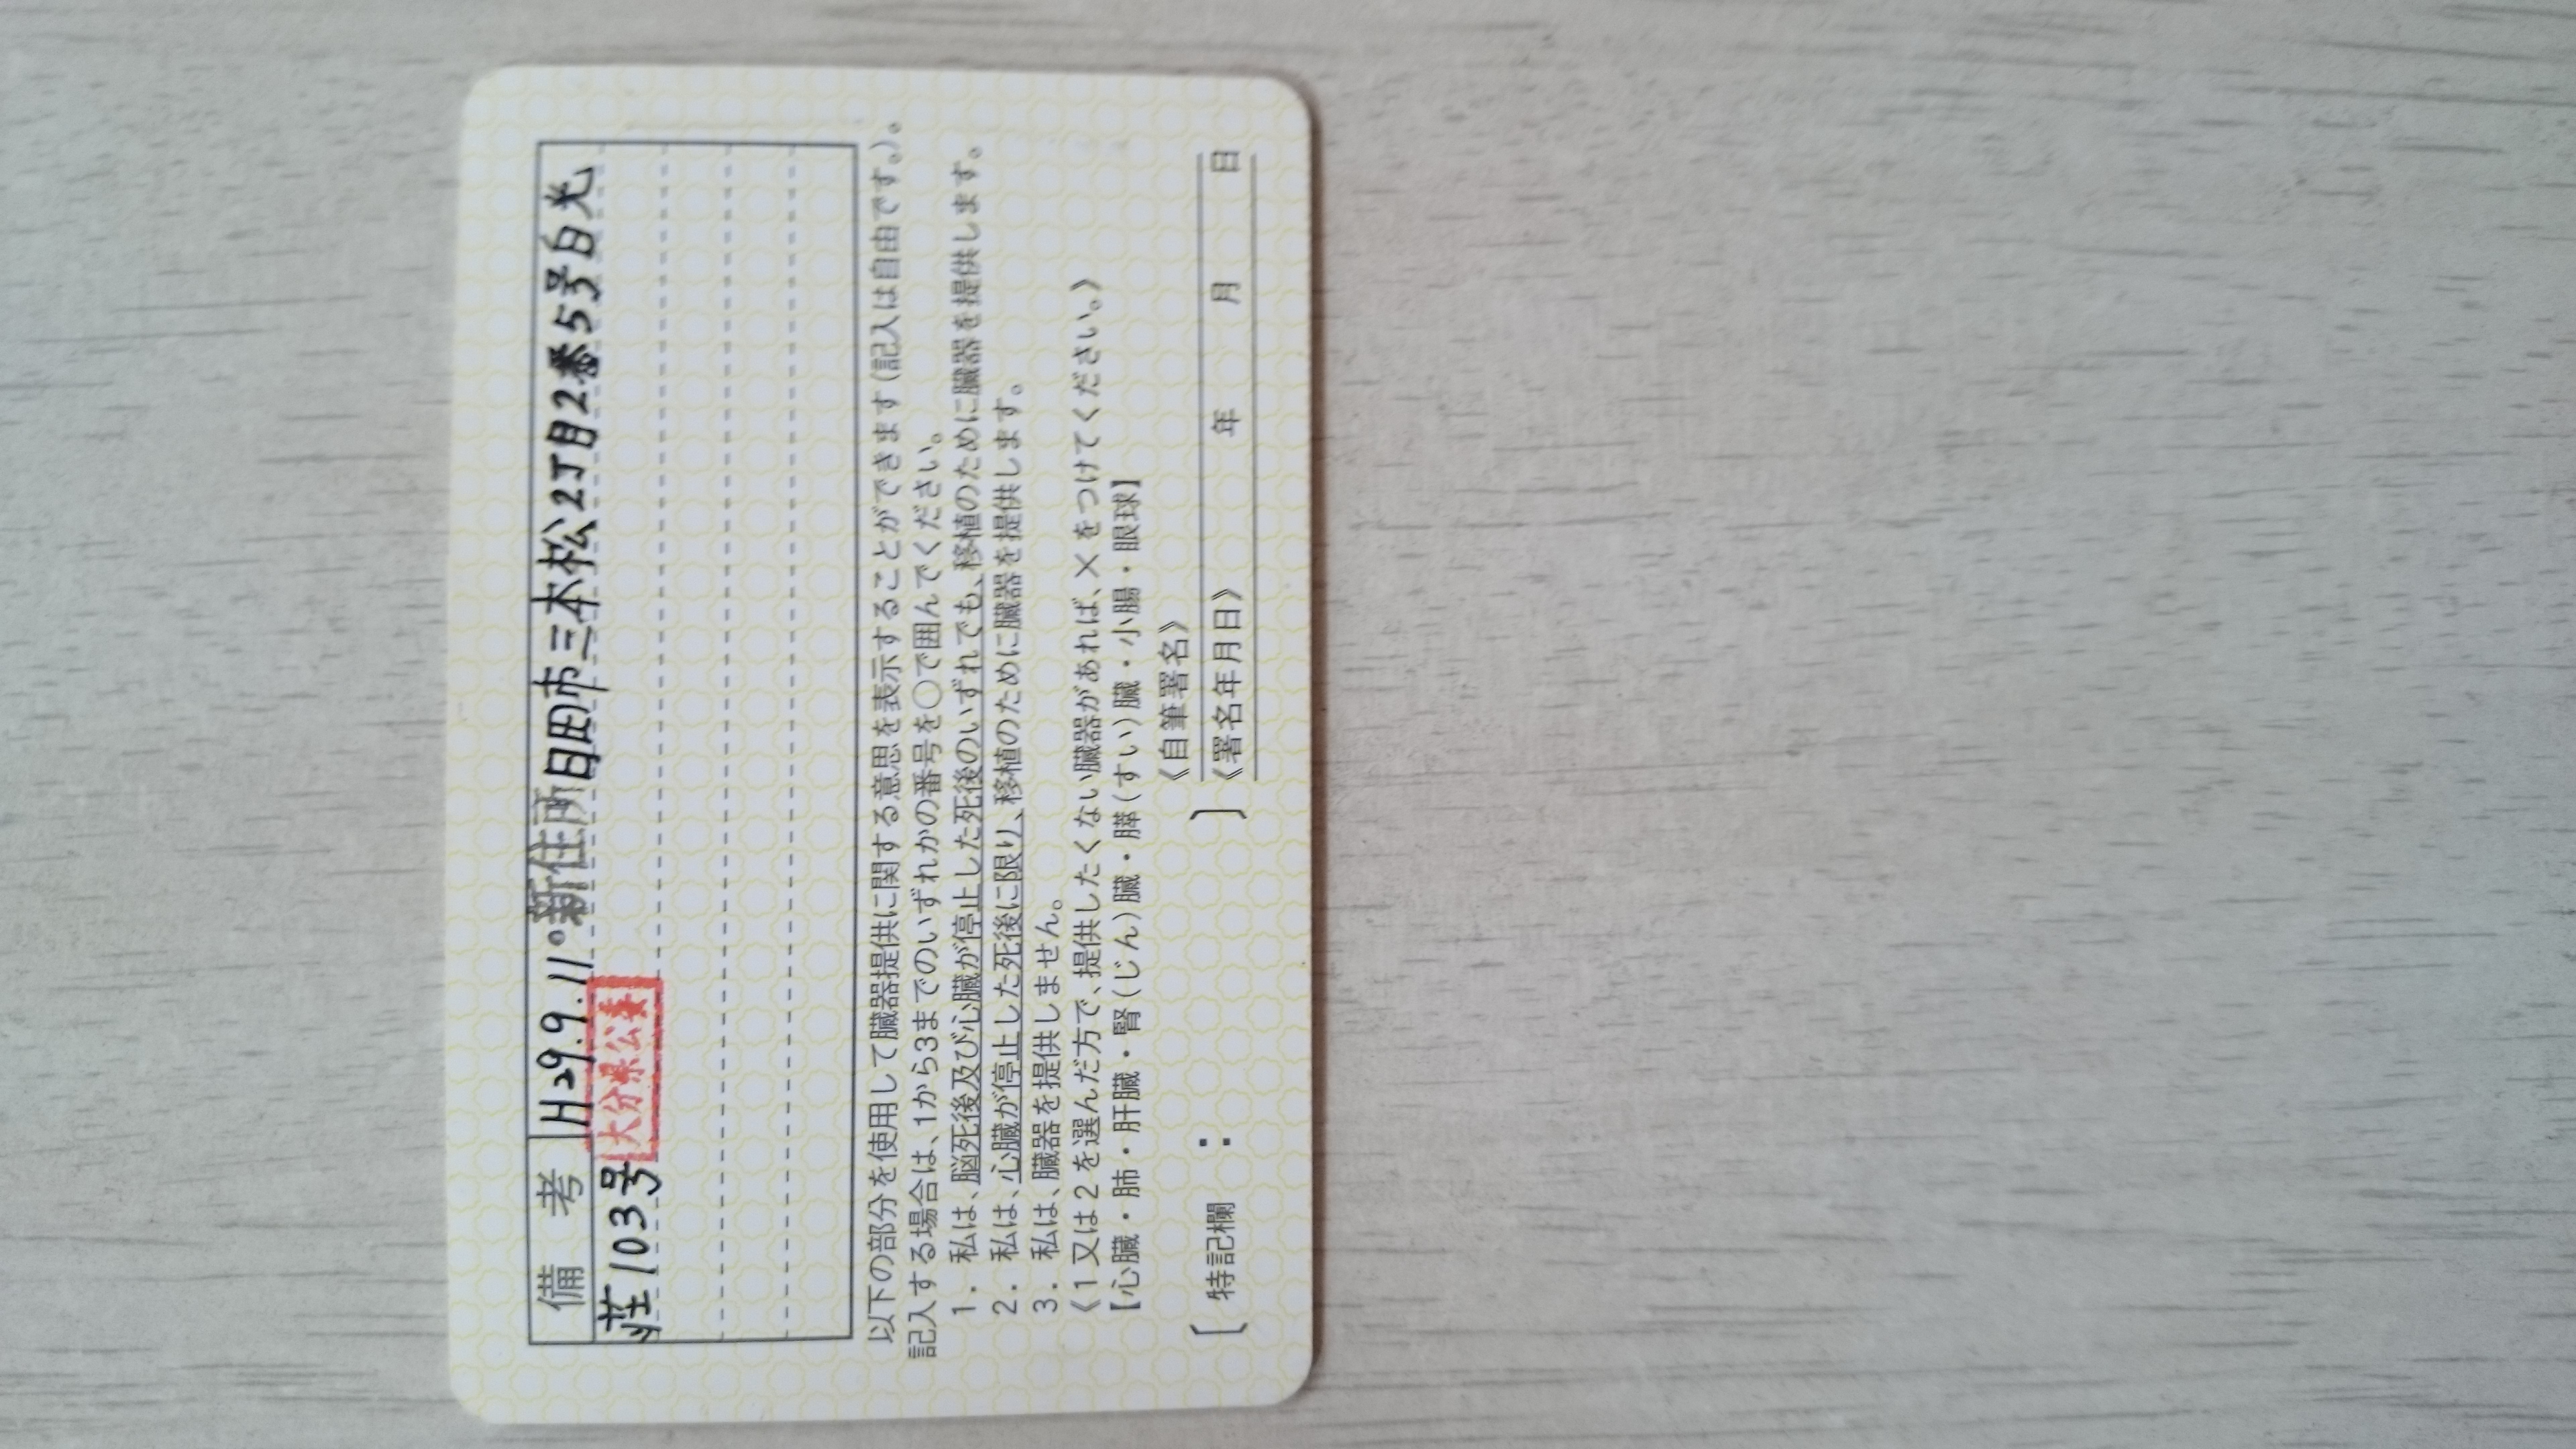 備考 H29.9.11 新住所 日田市三本松2丁目2番5号白光
荘103号 大分県公委
以下の部分を使用して臓器提供に関する意思を表示することができます(記入は自由です。)。
記入する場合は、1から3までのいずれかの番号を○で囲んでください。
1. 私は、脳死後及び心臓が停止した死後のいずれでも、移植のために臓器を提供します。
2. 私は、心臓が停止した死後に限り、移植のために臓器を提供します。
3. 私は、臓器を提供しません。
《1又は2を選んだ方で、提供したくない臓器があれば、×をつけてください。》
【心臓・肺・肝臓・腎(じん)臓・膵(すい)臓・小腸・眼球】
《自筆署名》
〔特記欄 : 〕《署名年月日》 年 月 日